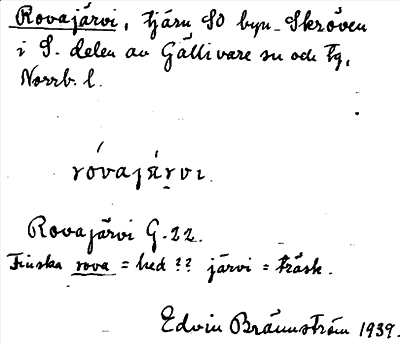 Rovajärvi, tjärn SO byn Skröven
i S. delen av Gällivare sn och tg,
Norrb. l.
róvajärvi.
Rovajärvi G. 22.
Finska rova = hed ?? järvi = träsk.
Edvin Brännström 1939.